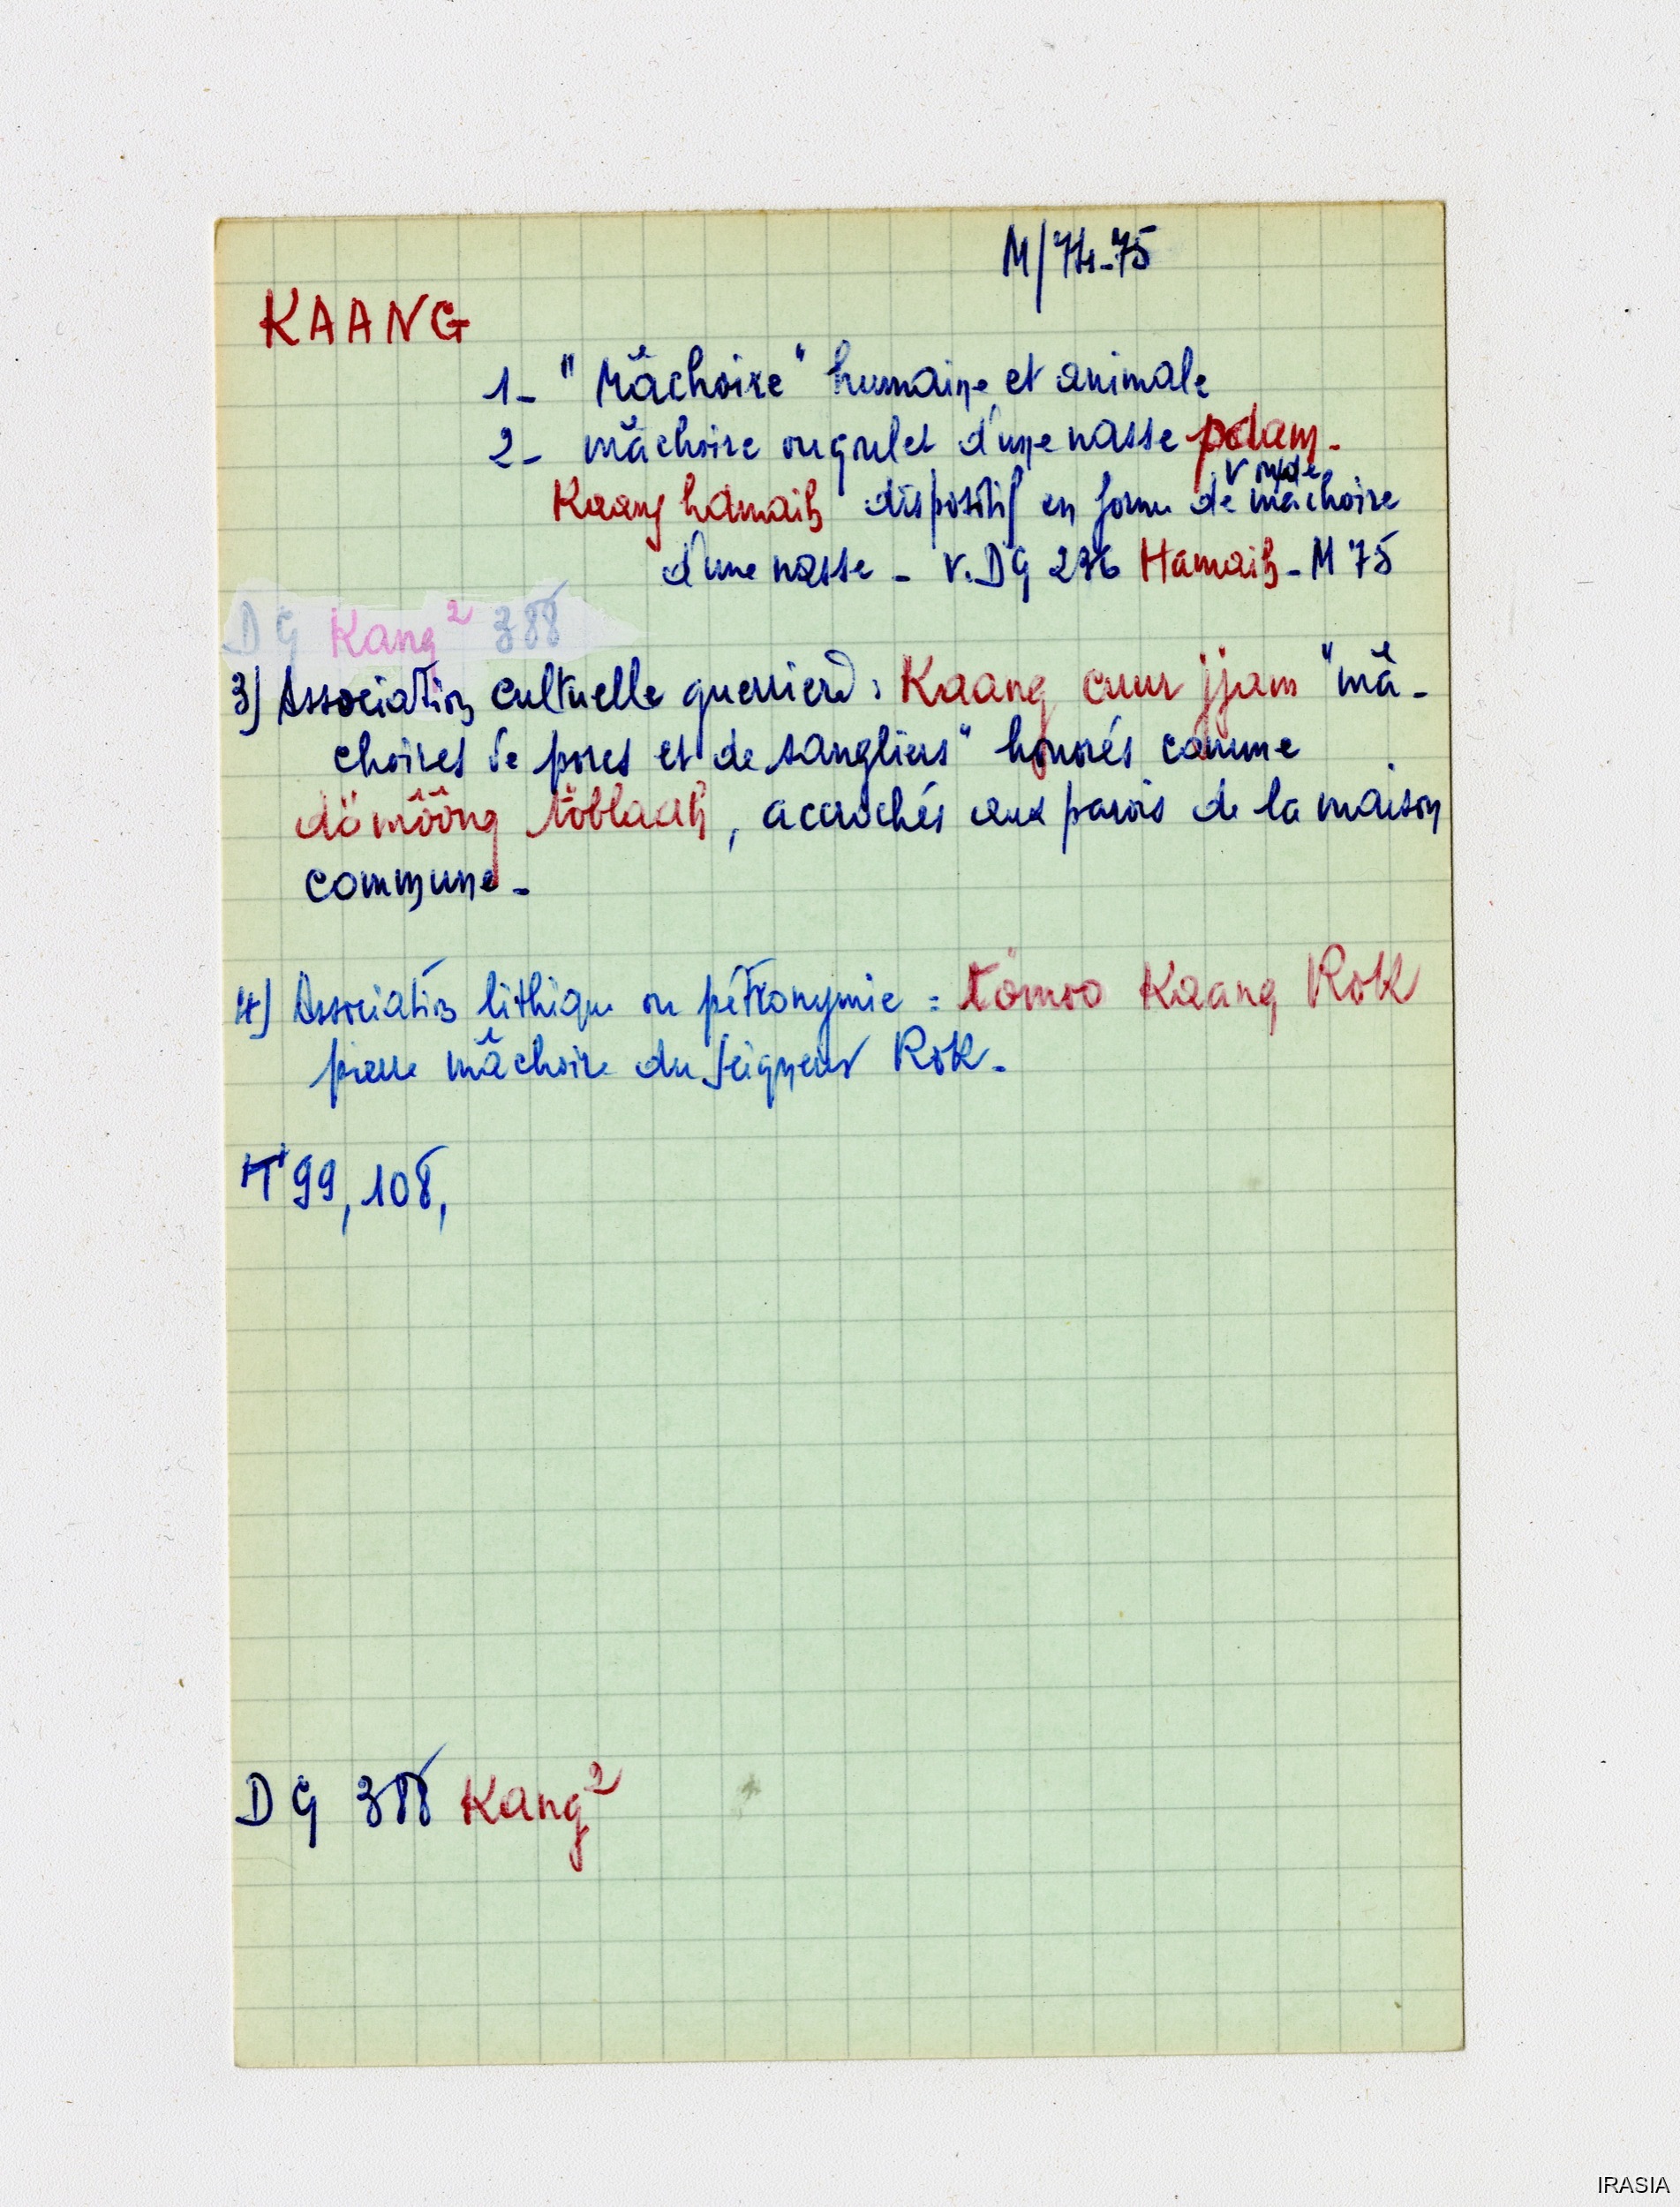 M/74-75
KAANG
1- "Mâchoire" humaine et animale
2- mâchoire ou goulet d'une nasse pdam.
v
Kaang hamaih dispositif en forme de mâchoire
d'une nasse - v. DG 276 Hamaih - M 75
DG Kang² 388
3) Association cultuelle guerrière : Kaang cuur jjam "mâ-
choires de porcs et de sangliers" honorés comme
dömôông töblaah, accrochés aux parois de la maison
commune -
4) Association lithique ou pétronymie : tömoo Kaang RoK
pierre mâchoire du Seigneur RoK.
99, 108,
DG 388 Kang²
IRASIA